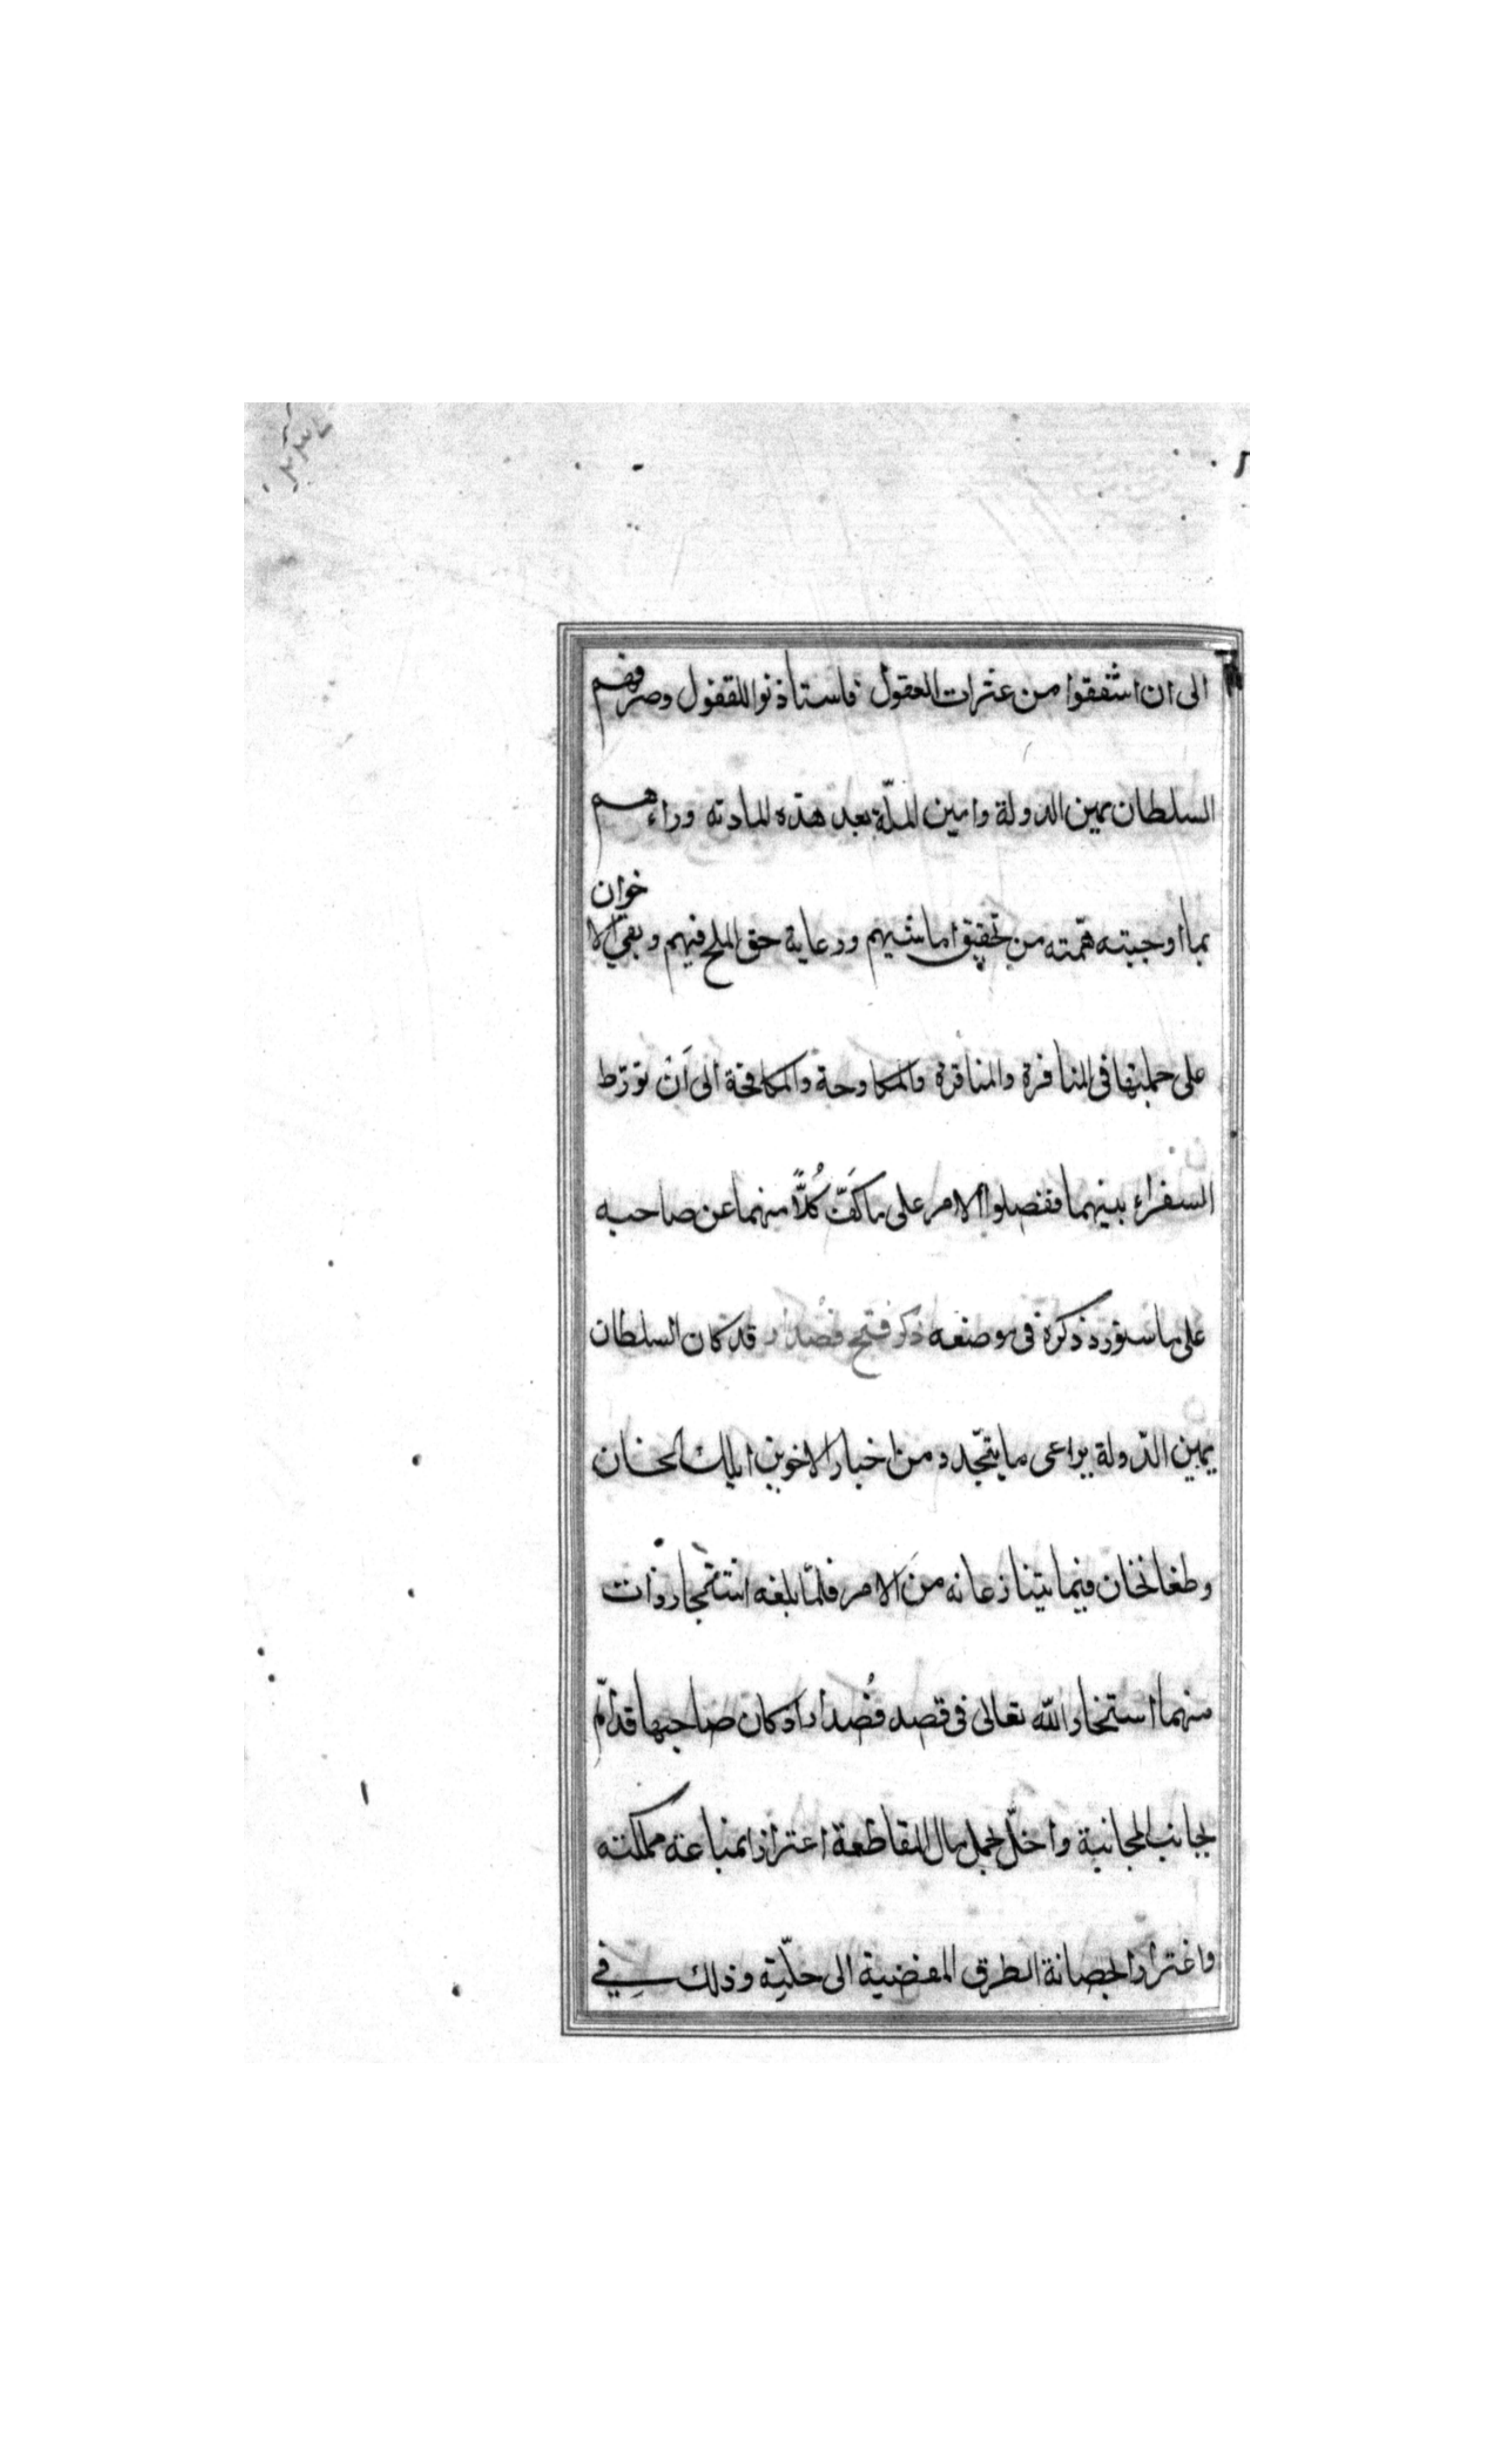 الى ان اشفقوا من عثرات العقول فاستاذنوا للقفول وصرفهم
السلطان يمين الدولة وامين الملّة بعد هذه المادته وراءهم
بما اوجبته همّته من تحقيق اماشيهم ورعاية حق الملح فيهم وبقي الاخوان
على جملتها فى المنافرة والمناقرة والمكاوحة والمكافحة الى اَنْ تورّط
السفراء بينهما ففصلوا الامر على ما كَفّ كُلاًّ منهما عن صاحبه
على ما سنورد ذكره فى موضعه ذكر فتح قصدار قد كان السلطان
يمين الدّولة يراعى ما يتجّدد من اخبار الاخوين ايلك الخان
وطغانخان فيما يتنازعانه من الامر فلمّا بلغه
منهما استخار اللّه تعالى فى قصد قُصدار اذ كان صاحبها قد المّ
بجانب المجانبة واخلّ بحمل مال المقاطعة اعترازا بمناعة مملكته
واغترارا بحصانة الطرق المفضية الى حلّته وذلك في